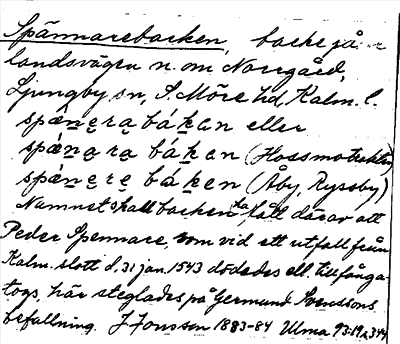 Spännarebacken, backe på
landsvägen n. om Norregård,
Ljungby sn, S. Möre hd, Kalm. l.
spä́nęra bákan eller
spä́nara bákan (Hossmotrakten)
spä́nęrę báken (Åby, Ryssby)
Namnet skall backen ha fått därav att
Peder Spennare, som vid ett utfall från
Kalm. slott d. 31 jan. 1543 dödades ell. tillfånga-
togs, här steglades på Germund Svenssons
befallning. J Jonsson 1883-84 Ulma 93:19, 344